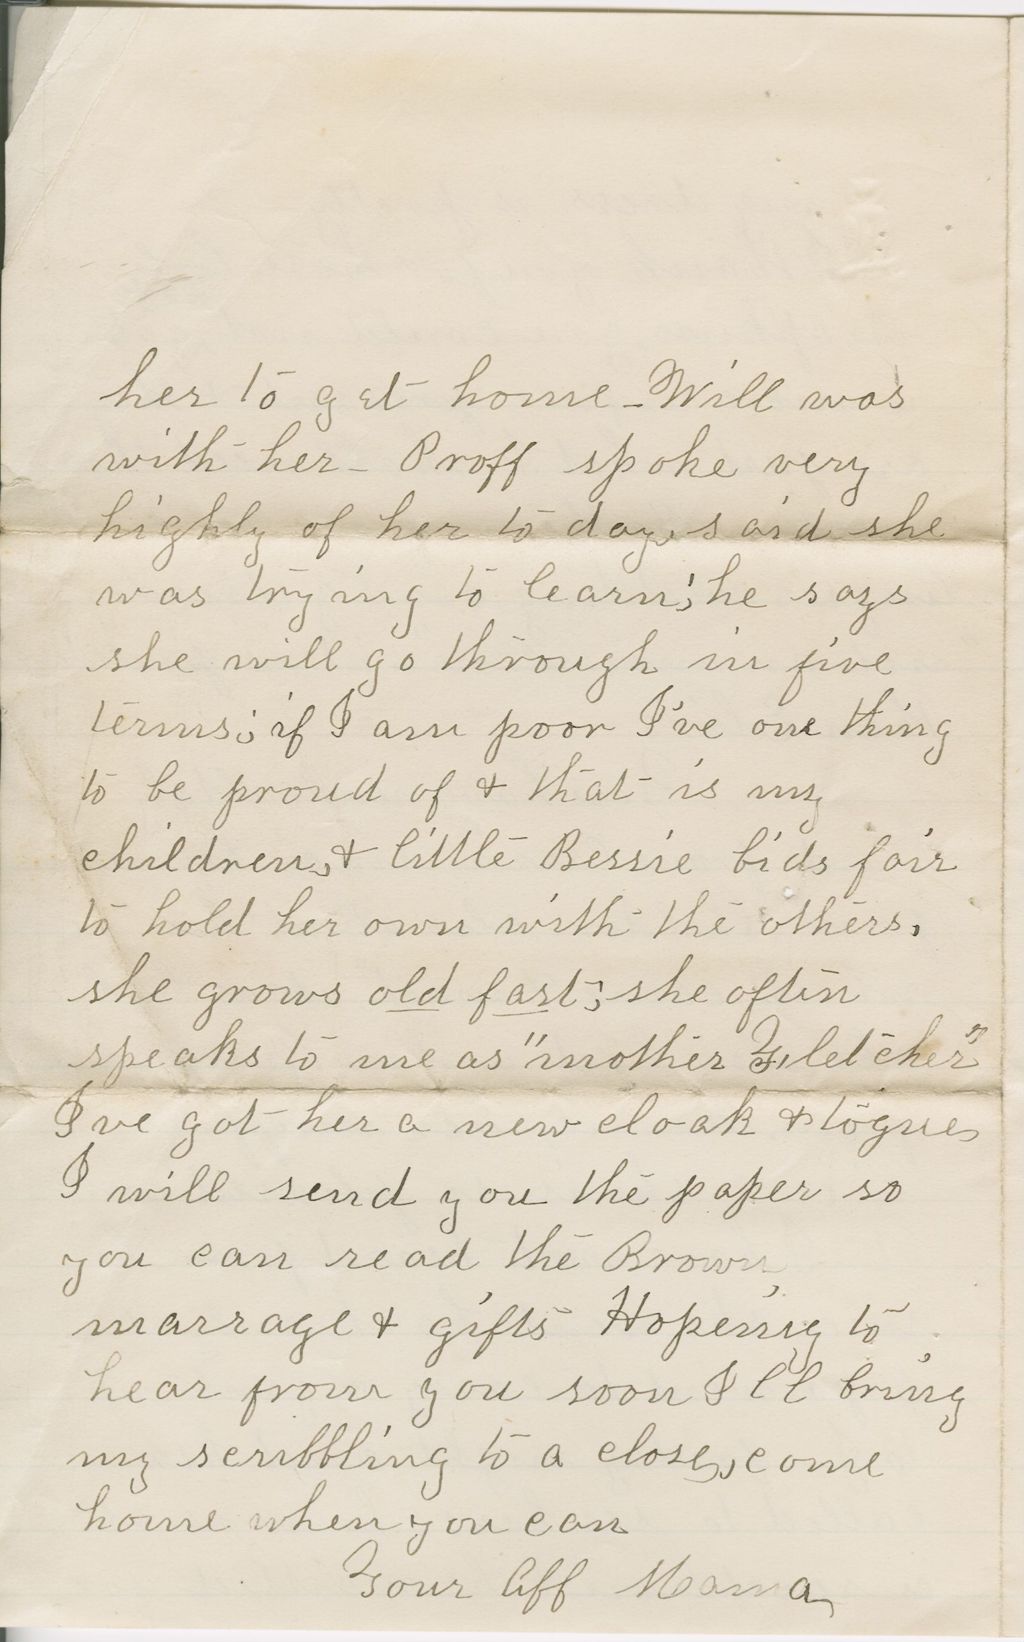 her to get home - Will was
with her - Proff spoke very
highly of her to day, said she
was trying to learn; he says
she will go through in five
terms; if I am poor I've one thing
to be proud of & that is my
children, & little Bessie bids fair
to hold her own with the others,
she grows old fast; she often
speaks to me as "mother Fletcher"
I've got her a new cloak & togue,
I will send you the paper so
you can read the Brown
marrage & gifts Hopeing to
hear from you soon I'll bring
my scribbling to a close, come
home when you can
Your Aff Mama,